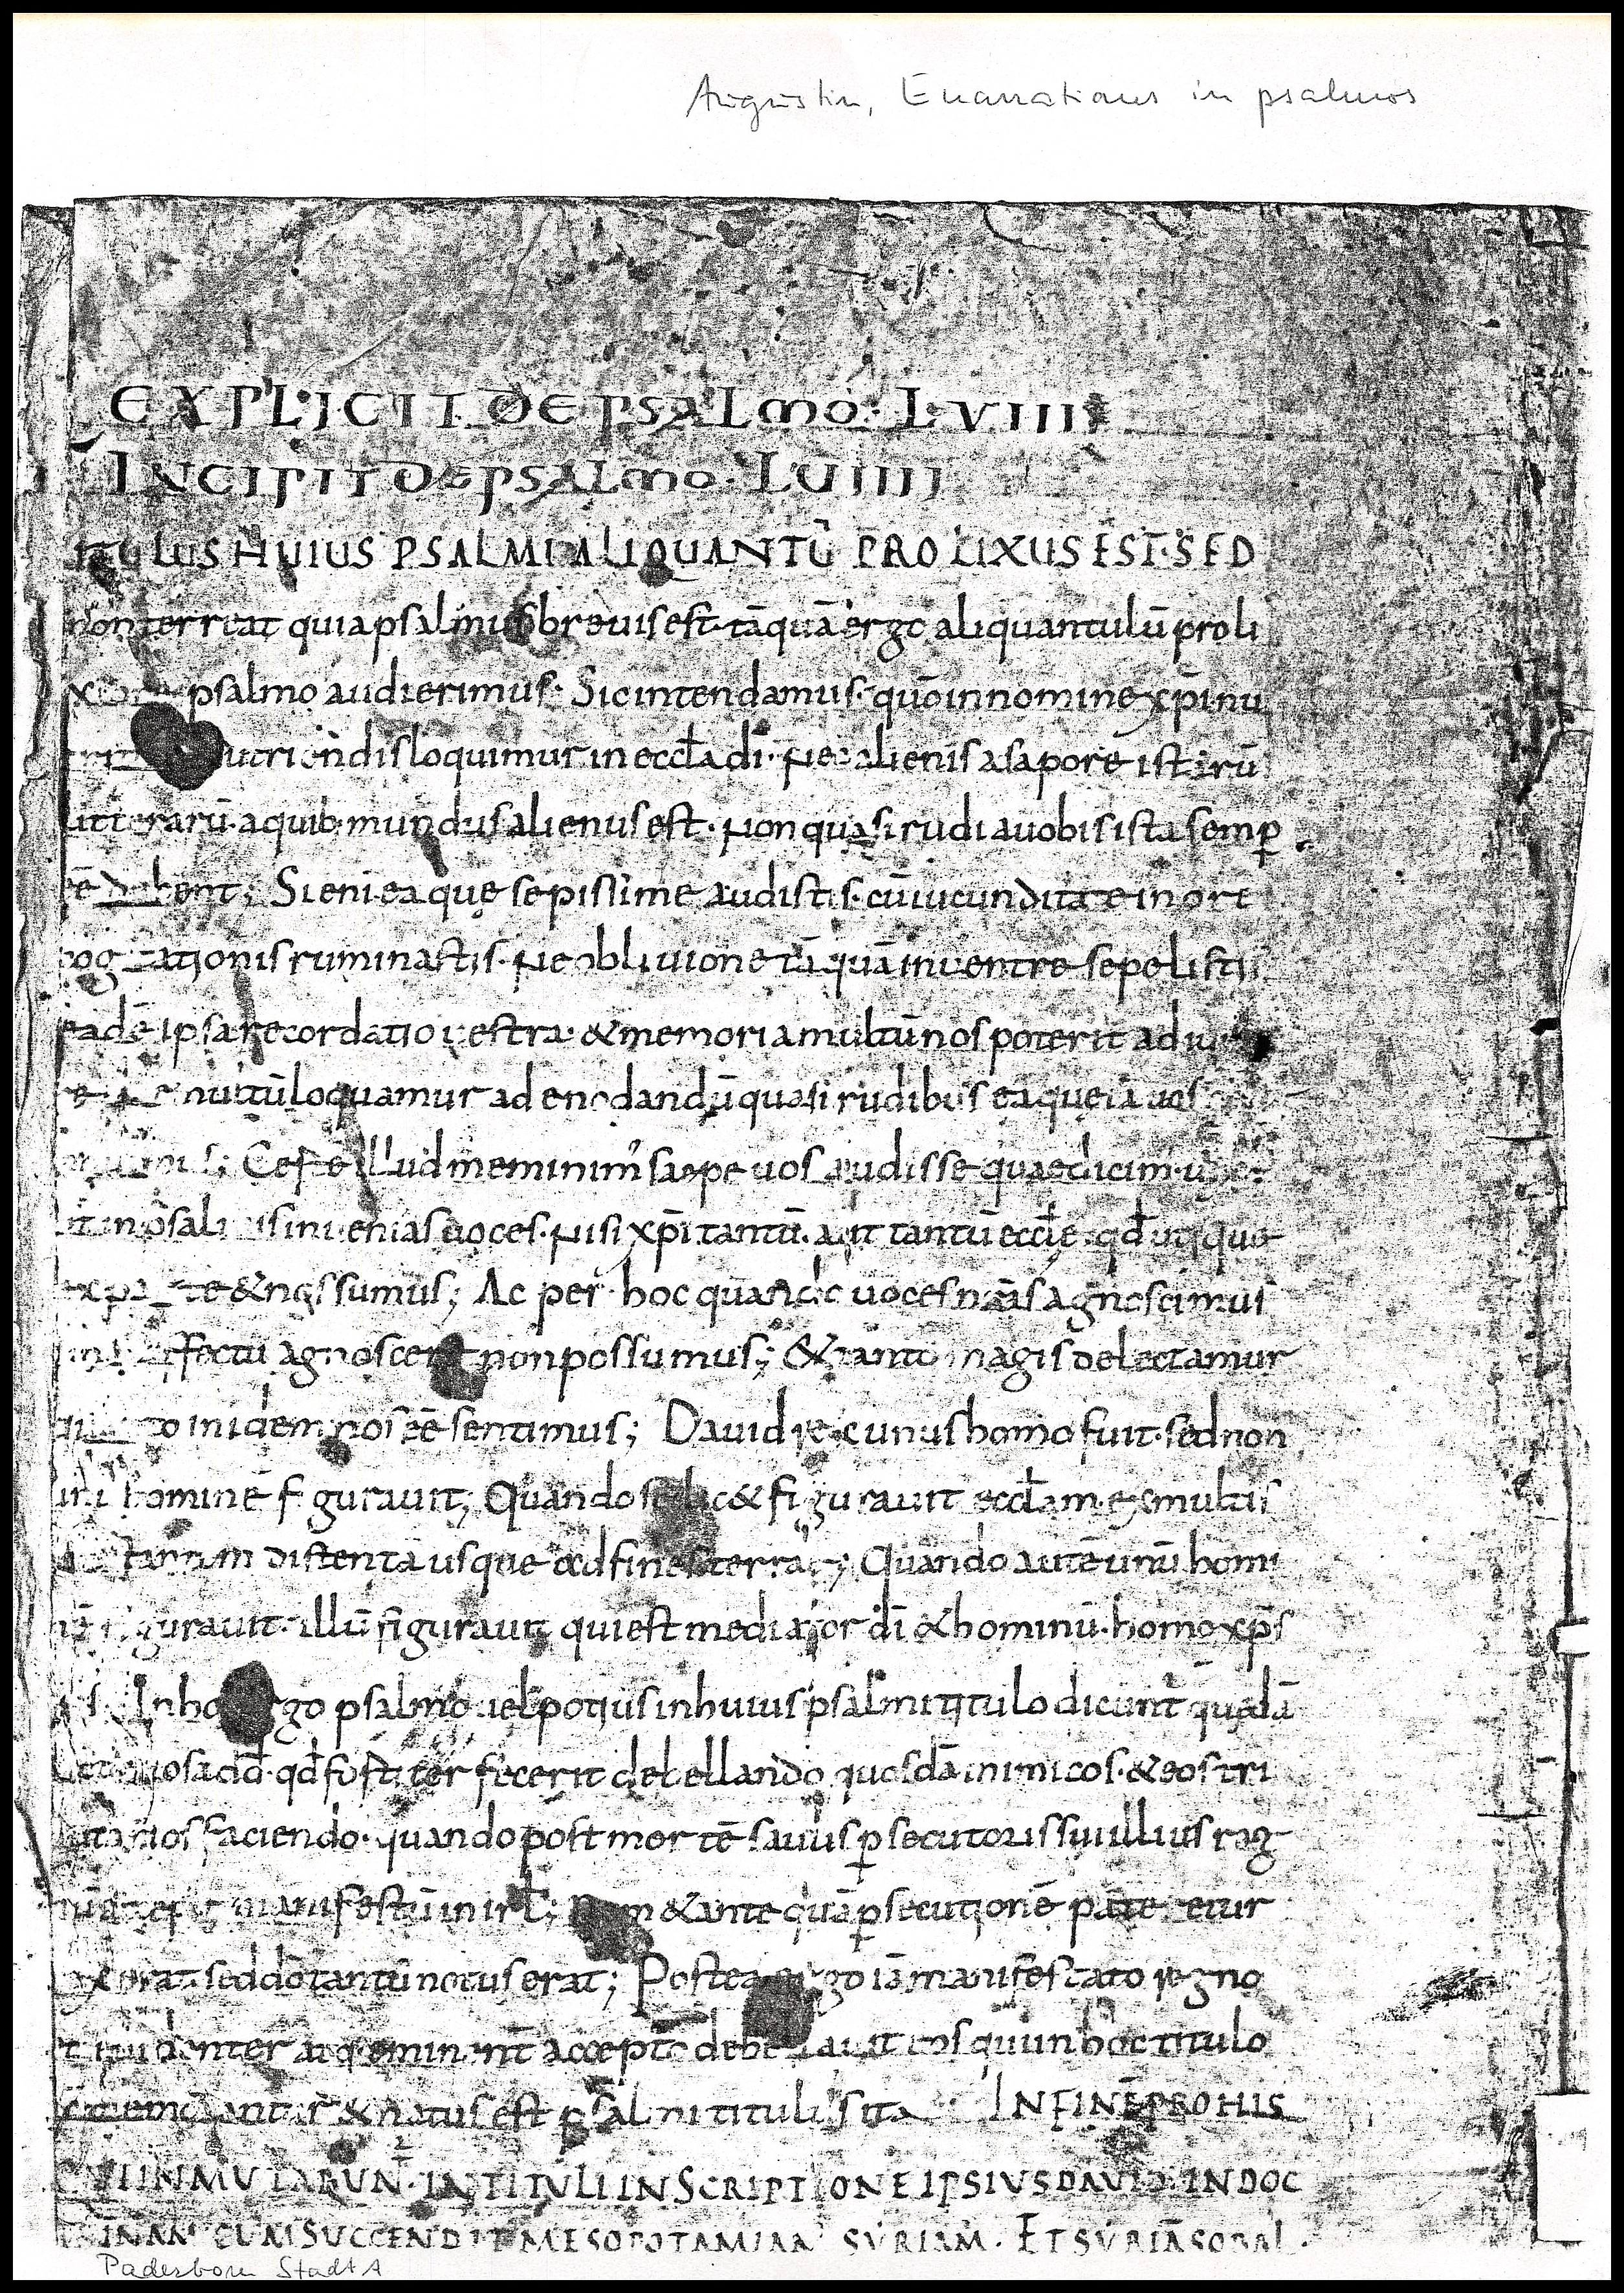 Augustin, Enarrationes in psalmos
EXPLICIT DE PSALMO· LVIII
INCIPIT DE PSALMO· LUIIII
TITULUS HUIUS PSALMI ALIQUANTŪ PROLIXUS EST· SED
non terreat quia psalmus breuis est· tāquā ergo aliquantulū proli
psalmo audierimus· Sic intendamus· quō in nomine xp̄i nu
utriendis loquimur in eccl̄a dī· Nec alienis a sapore istarū
litterarū· a quib· mundus alienus est· Non quasi rudia uobis ista semp̱
eē debent; Si eni ea que sepissime audistis· cū iucunditate in ore
cogitationis ruminastis· Ne obliuione tāquā in uentre sepelistis
eadē ipsa recordatio uestra· & memoria multū nos poterit adiu
multū loquamur ad enodandū quasi rudibus ea que iā uos
Certe illud meminim' saepe uos audisse quae dicimus
it in psalmis inuenias uoces· Nisi xp̄i tantū· aut tantū eccl̄e· qd̄ utique
ex parte & nos sumus; Ac per hoc quando uoces nr̄as agnoscimus
sine affectu agnoscere non possumus; & tanto magis delectamur
quanto in idem nos eē sentimus; Dauid rex unus homo fuit· sed non
unū hominē figurauit; Quando scilic& figurauit eccl̄am ex multis
distentā usque ad fines terrae; Quando autē unū homi
nē figurauit· illū figurauit qui est mediator dī & hominū· homo xp̄s
In hoc ergo psalmo uel potius in huius psalmi titulo dicunt' quaedā
dauid· qd̄ fortiter fecerit debellando quosdā inimicos· & eos tri
butarios faciendo· quando post mortē saulis p̱secutoris sui illius reg
manifestū in irl̄; Nam & ante quā p̱secutionē pateretur
rex erat sed dō tantū notus erat; Postea ergo iā manifestato regno
euidenter atq· eminent̄ accepto debellauit eos qui in hoc titulo
commemorantur & notatus est psalmi titulus ita IN FINE PRO HIS
QUI INMUTABUNT· IN TITULI INSCRIPTIONE IPSIUS DAUID· IN DOC
TRINAM CUM SUCCENDIT MESOPOTAMIAM SYRIAM· ET SYRIĀ SOBAL·
Paderborn StadtA